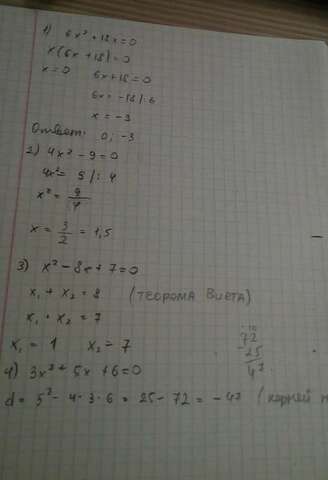 1) 6x² + 18x = 0
x(6x + 18) = 0
x = 0 6x + 18 = 0
6x = -18 |: 6
x = -3
Ответ: 0; -3
2) 4x² - 9 = 0
4x² = 9 |: 4
x² = 9/4
x = 3/2 = 1,5
3) x² - 8x + 7 = 0
x₁ + x₂ = 8 (ТЕОРОМА Виета)
x₁ · x₂ = 7
x₁ = 1 x₂ = 7
72
-25
47
4) 3x² + 5x + 6 = 0
d = 5² - 4 · 3 · 6 = 25 - 72 = -47 (корней н